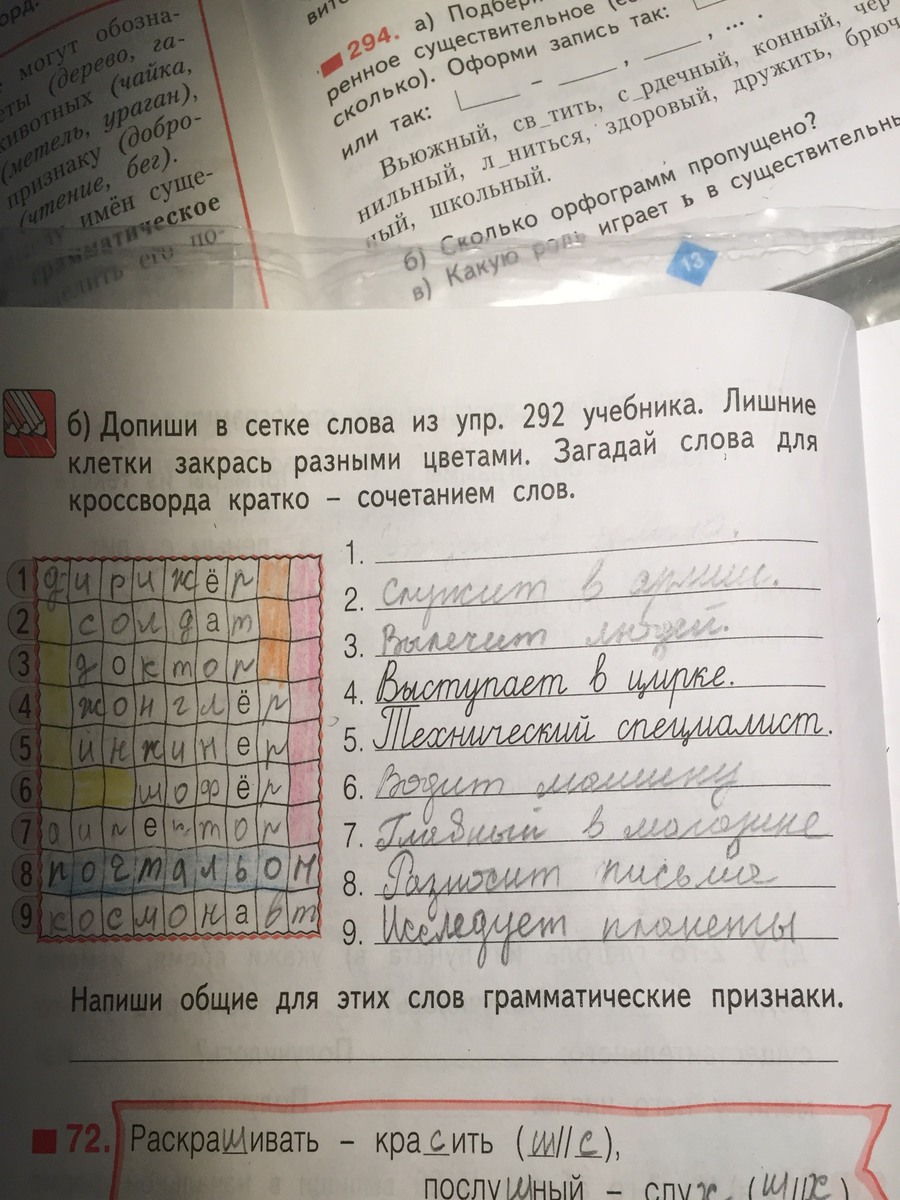 орд.
могут обозна-
еты (дерево, га-
животных (чайка,
(метель, ураган),
признаку (добро-
(чтение, бег).
имён суще-
грамматическое
его по-
294. а) Подбер
ренное существительное (е
сколько). Оформи запись так:
или так: – , , ... .
Вьюжный, св_тить, с_рдечный, конный, чер
нильный, л_ниться, здоровый, дружить, брюч
ный, школьный.
б) Сколько орфограмм пропущено?
в) Какую роль играет ь в существительны
13
б) Допиши в сетке слова из упр. 292 учебника. Лишние
клетки закрась разными цветами. Загадай слова для
кроссворда кратко – сочетанием слов.
1 дирижёр
2 солдат
3 доктор
4 жонглёр
5 инжинер
6 шофёр
7 директор
8 почтальон
9 космонавт
1.
2. Служит в армии.
3. Вылечит людей.
4. Выступает в цирке.
5. Технический специалист.
6. Водит машину
7. Главный в магазине
8. Разносит письма
9. Исследует планеты
Напиши общие для этих слов грамматические признаки.
72. Раскрашивать – красить (ш//с),
послушный – слух (ш//х)